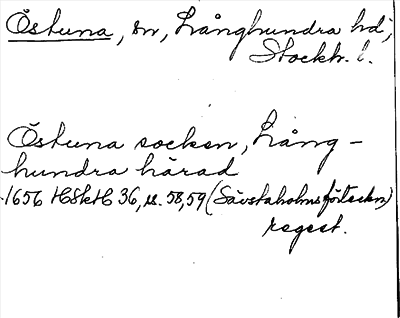 Östuna, sn, Långhundra hd,
Stockh. l.
Östuna socken, Lång-
hundra härad
1656 HSkH 36, s. 58, 59 (Sävstaholmsförteckn)
regest.